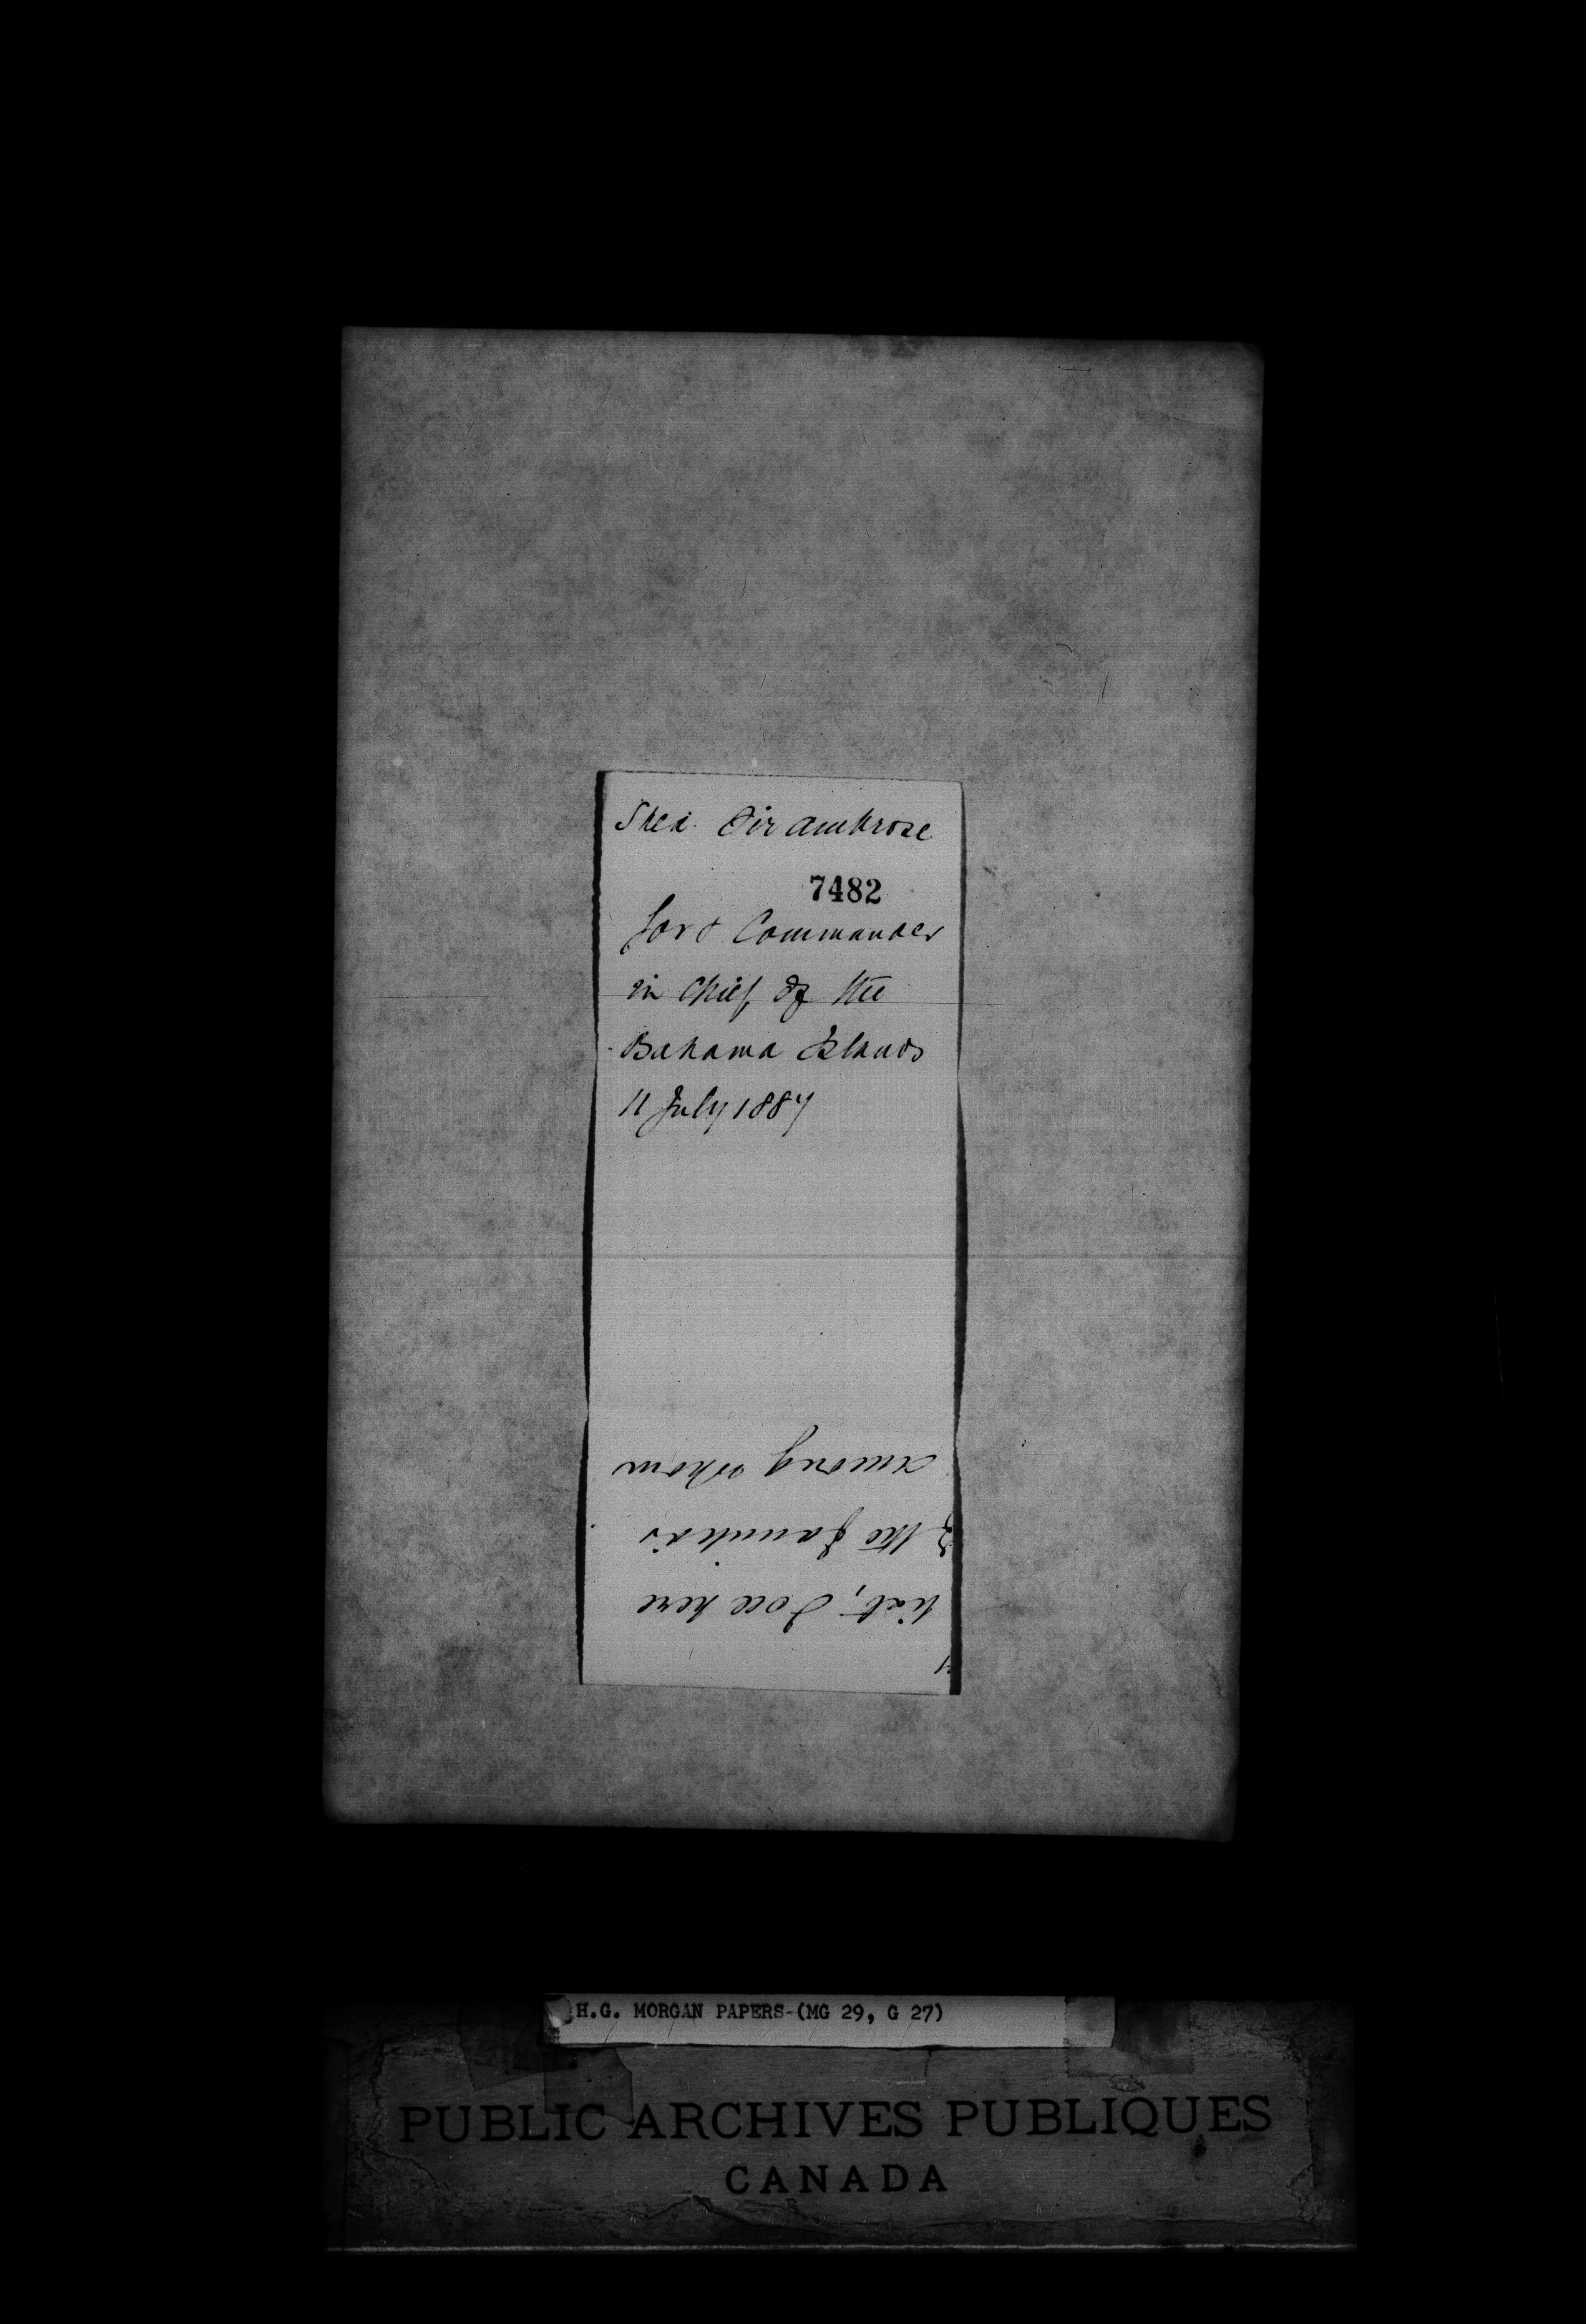 Shea. Sir Ambrose
7482
Gov & Commander
in Chief, of the
Bahama Islands
11 July 1887
list, I see here
of the families
among whom
H.G. MORGAN PAPERS-(MG 29, G 27)
PUBLIC ARCHIVES PUBLIQUES
CANADA